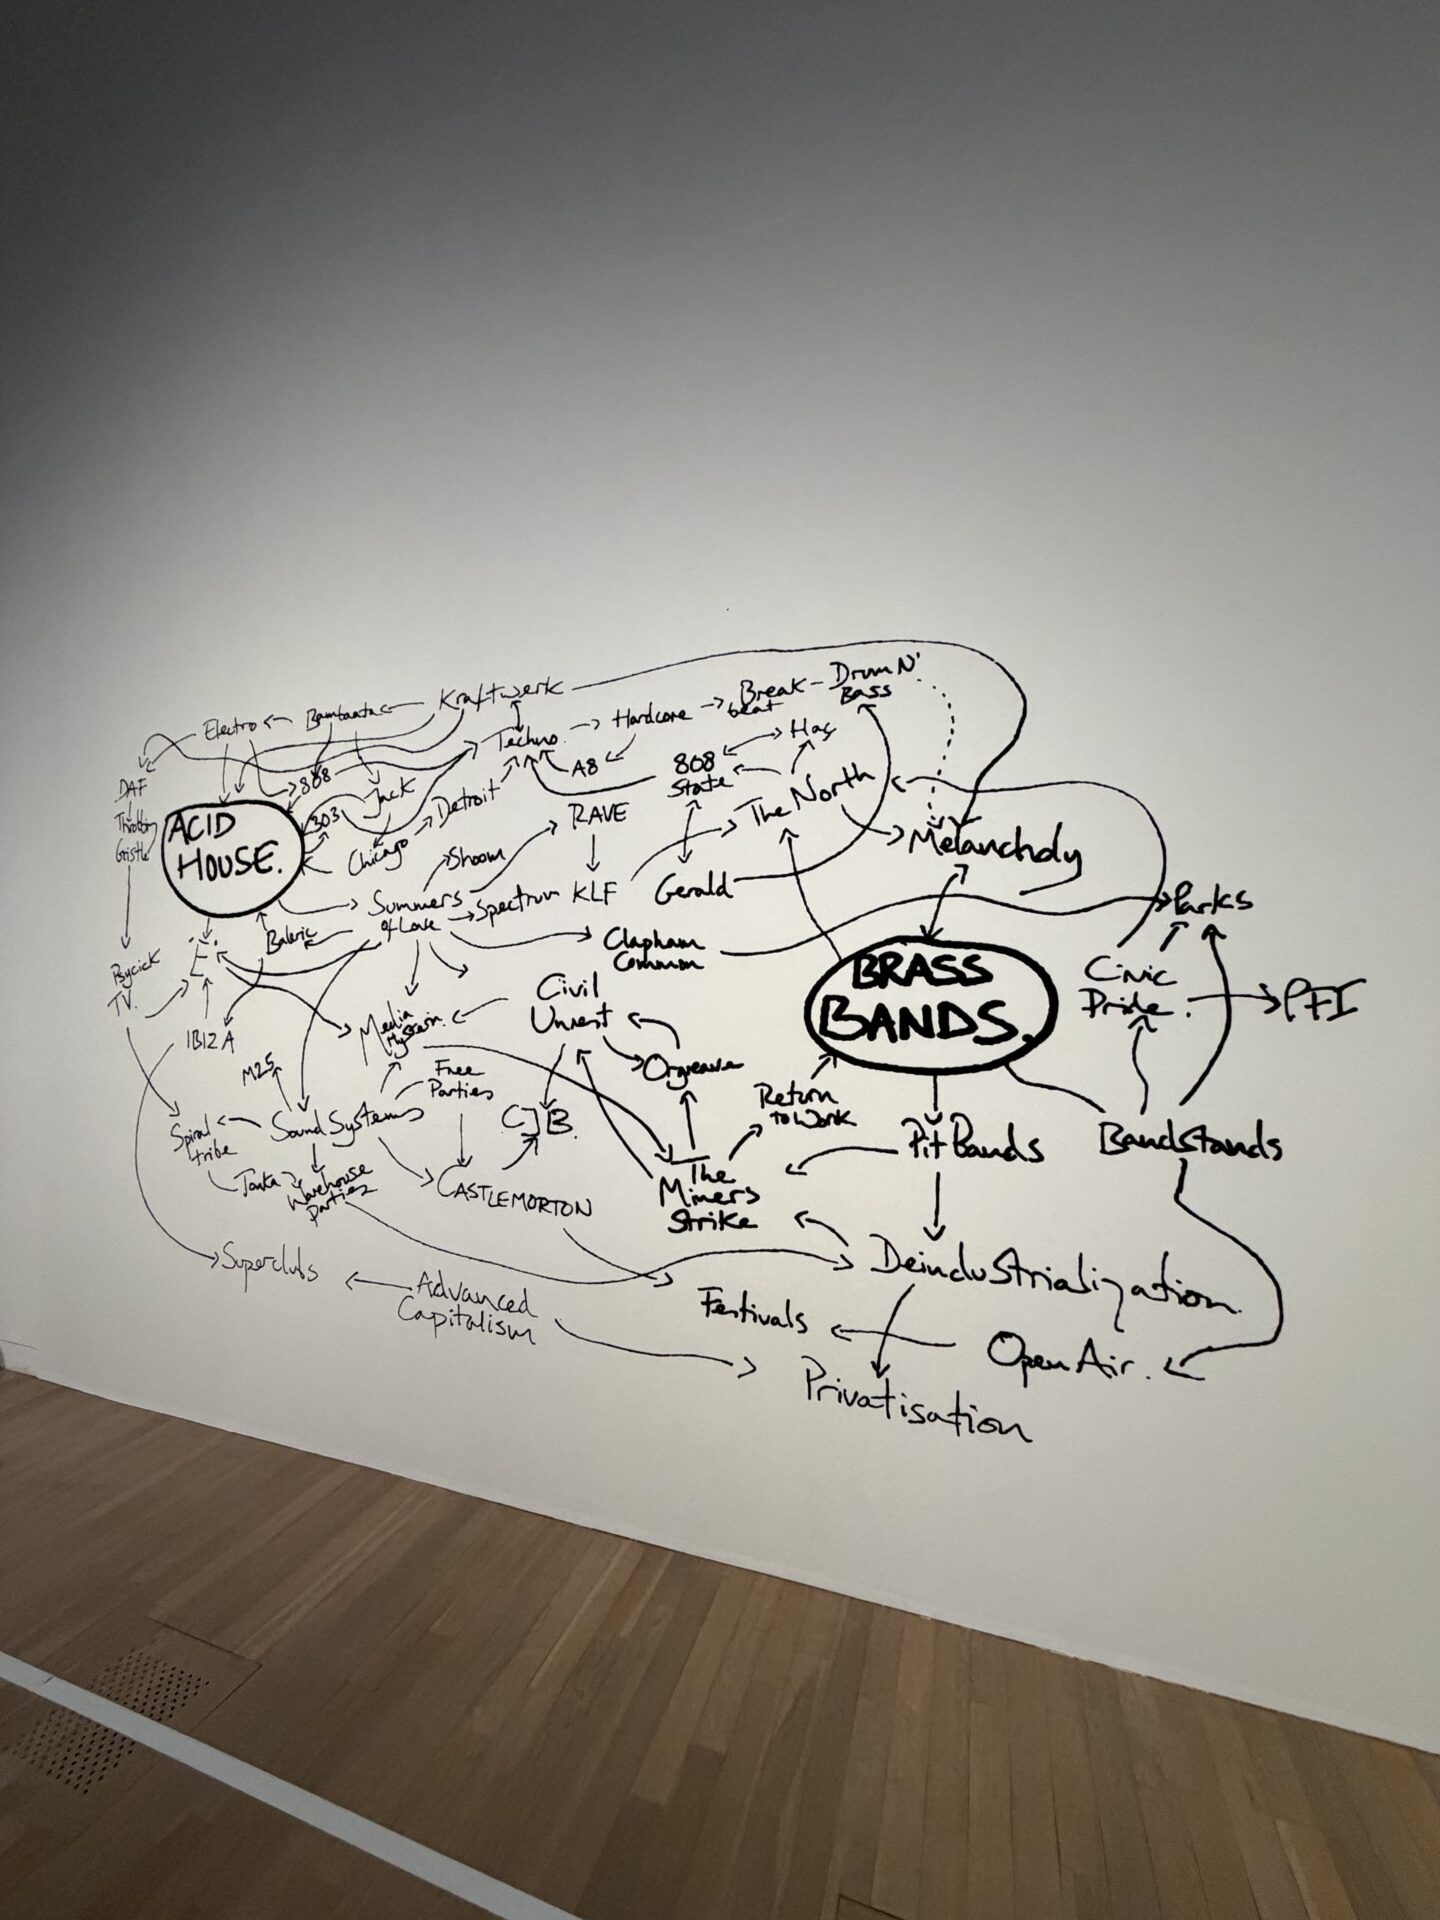 Kraftwerk
Electro
Bambaata
Techno.
Hardcore
Break-
beat
Drum N'
Bass
DAF
Throbbing
Gristle
808
303
Jack
Detroit
Chicago
A8
808
State
Hac
RAVE
The North
Melancholy
ACID
HOUSE.
Shoom
Summers
of Love
Spectrum
KLF
Gerald
Parks
Baleric
"E"
Clapham
Common
BRASS
BANDS.
Civic
Pride.
PFI
Psycick
TV.
IBIZA
Media
Civil
Unrest
Orgreave
M25
Free
Parties
Return
to Work
Spiral
tribe
Sound Systems
CJB.
Pit Bands
Bandstands
Tonka
Warehouse
Parties
CASTLEMORTON
The
Miners
Strike
Superclubs
Advanced
Capitalism
Deindustrialization.
Festivals
Open Air.
Privatisation